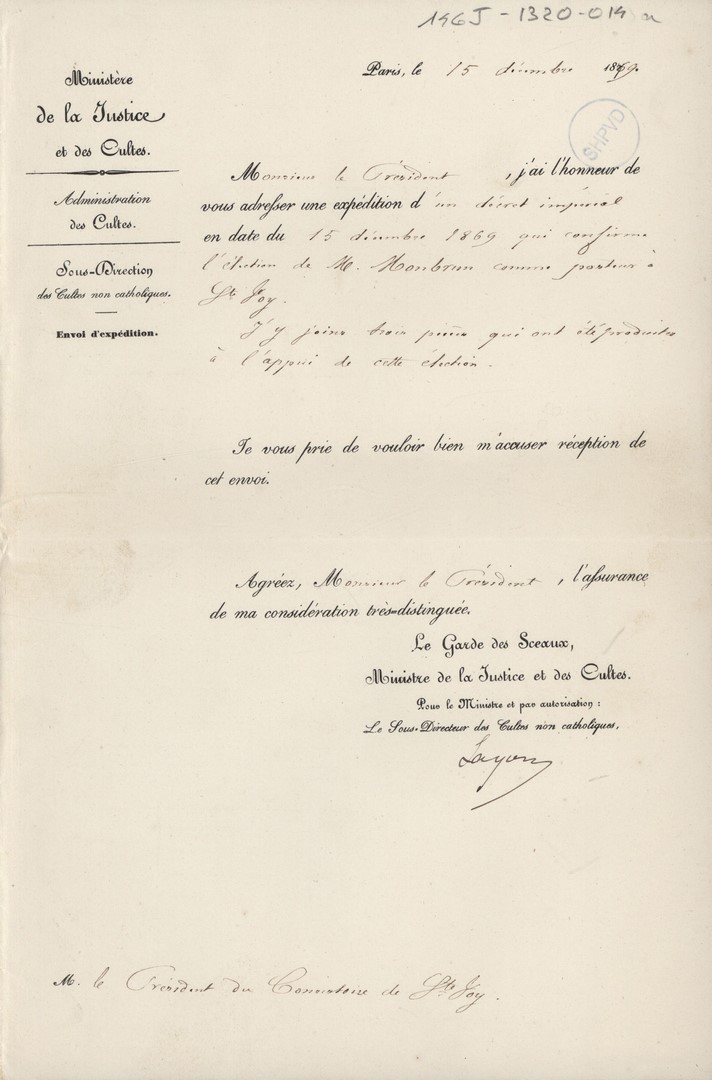 146J-1320-014 a
Ministère
de la Justice
et des Cultes.
Administration
des Cultes.
Sous-Direction
des Cultes non catholiques.
Envoi d'expédition.
Paris, le 15 décembre 1869.
SHPVD
Monsieur le Président, j'ai l'honneur de
vous adresser une expédition d'un décret impérial
en date du 15 décembre 1869 qui confirme
l'élection de M. Monbrun comme pasteur à
Ste Foy.
J'y joins trois pièces qui ont été produites
à l'appui de cette élection.
Je vous prie de vouloir bien m'accuser réception de
cet envoi.
Agréez, Monsieur le Président, l'assurance
de ma considération très-distinguée.
Le Garde des Sceaux,
Ministre de la Justice et des Cultes.
Pour le Ministre et par autorisation :
Le Sous-Directeur des Cultes non catholiques,
M. le Président du Consistoire de Ste Foy.